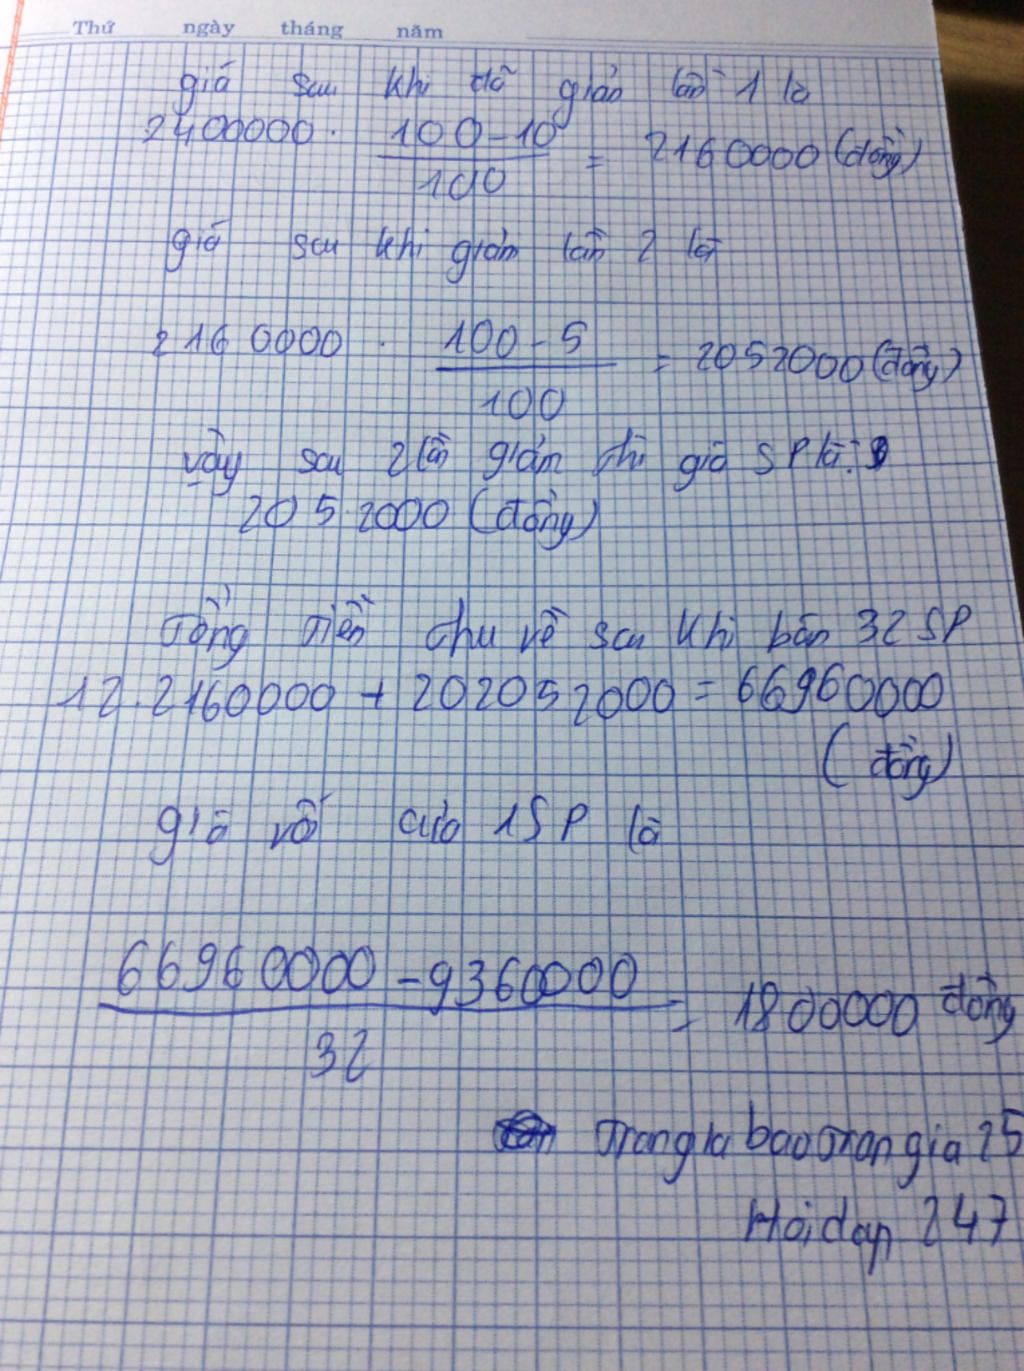 Thứ ngày tháng năm
giá sau khi đã giản lần 1 là
2400000 . 100-10 / 100 = 2160000 (đồng)
giá sau khi giảm lần 2 là
2160000 . 100-5 / 100 = 2052000 (đồng)
vậy sau 2 lần giảm thì giá SP là:
2052000 (đồng)
Tổng Tiền thu về sau khi bán 32 SP
12.2160000 + 202052000 = 66960000
(đồng)
giá vố của 1SP là
66960000 - 9360000 / 32 = 1800000 đồng
Trangla baoTrangia 25
Hoidap 247